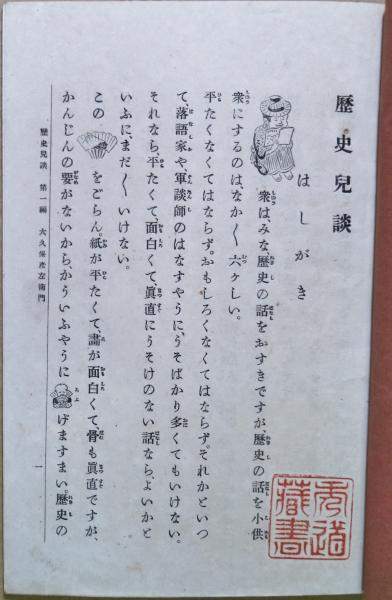 歷史兒談
はしがき
衆は、みな、歷史の話をおすきですが、歷史の話を小供
衆にするのは、なか〱六ケしい。
平たくなくてはならず。おもしろくなくてはならず。それかといつ
て、落語家や、軍談師のはなすやうに、うそばかり多くてもいけない。
それなら、平たくて、面白くて、眞直にうそけのない話なら、よいかと
いふに、まだ〱いけない。
この
をごらん。紙が平たくて、畵が面白くて、骨も眞直ですが、
かんじんの要がないから、かういふやうに
げますまい。歷史の
歷史兒談 第一編 大久保彦左衛門
一
藏書